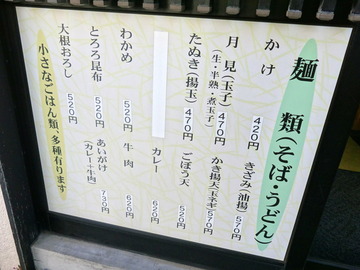 麺類(そば・うどん)
かけ 420円
月見(玉子) 470円
(生・半熟・煮玉子)
たぬき(揚玉) 470円
わかめ 520円
とろろ昆布 520円
大根おろし 520円
きざみ(油揚)
かき揚天(玉ネギ) 570円
ごぼう天 520円
カレー 620円
牛肉 620円
あいがけ 730円
(カレー+牛肉)
小さなごはん類、多種有ります